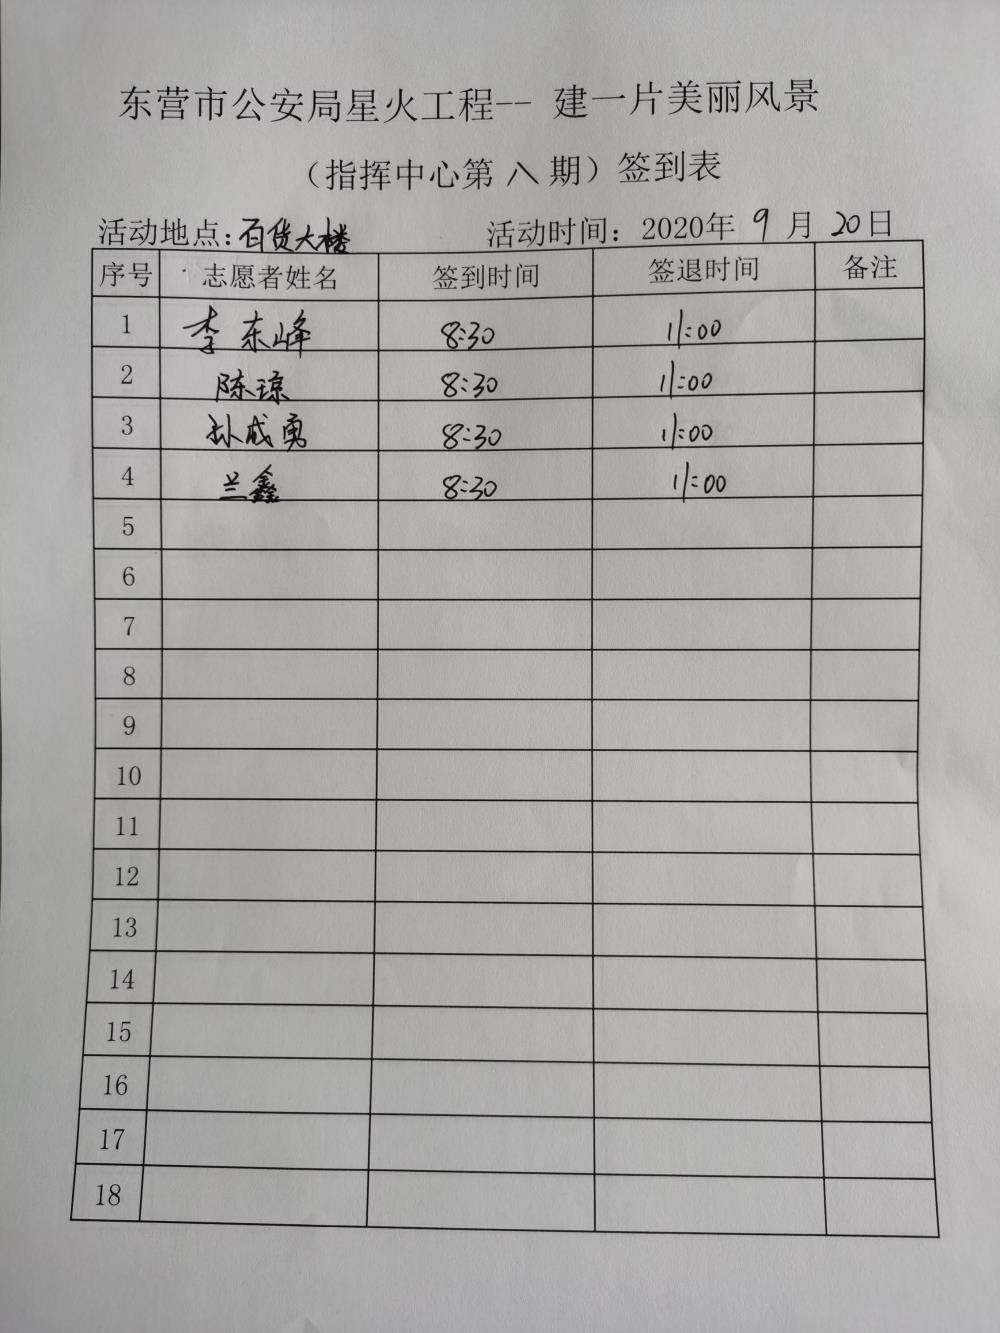 东营市公安局星火工程-- 建一片美丽风景
（指挥中心第 八 期）签到表
活动地点：百货大楼 活动时间：2020年 9 月 20日
序号 志愿者姓名 签到时间 签退时间 备注
1 李东峰 8:30 11:00
2 陈琼 8:30 11:00
3 孙成勇 8:30 11:00
4 兰鑫 8:30 11:00
5
6
7
8
9
10
11
12
13
14
15
16
17
18